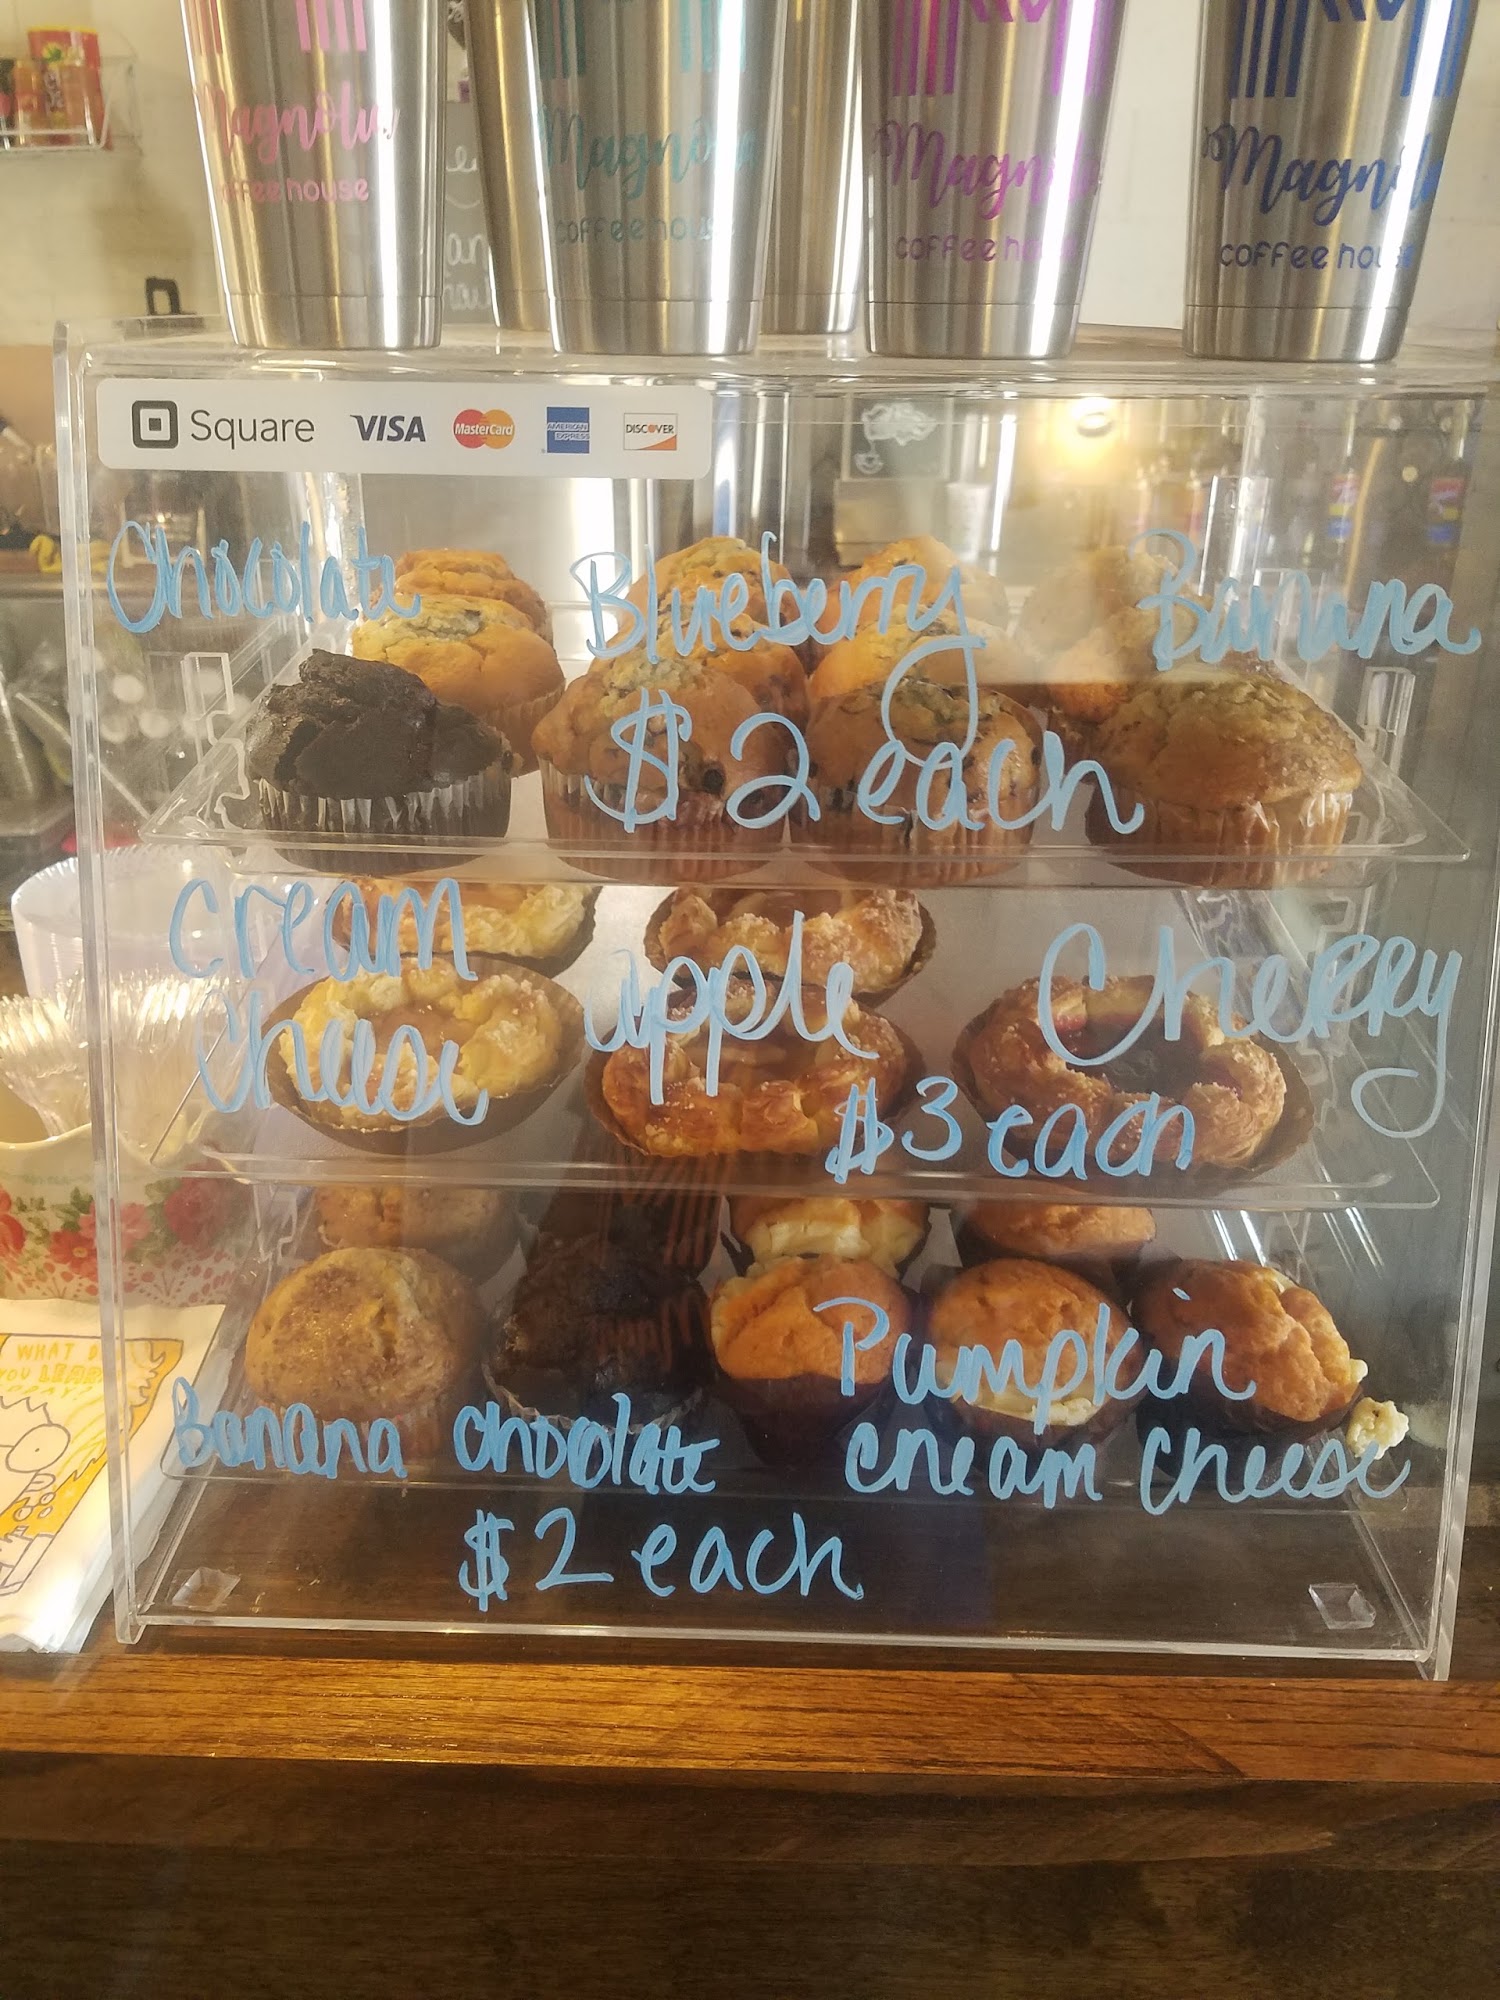 Magnolia
coffee house
Magnolia
coffee house
Magnolia
coffee house
Magnolia
coffee house
Square VISA MasterCard AMERICAN EXPRESS DISCOVER
Chocolate Blueberry Banana
$2 each
Cream Cheese apple Cherry
$3 each
Banana chocolate Pumpkin cream cheese
$2 each
WHAT D
YOU LEAR
ODAY?